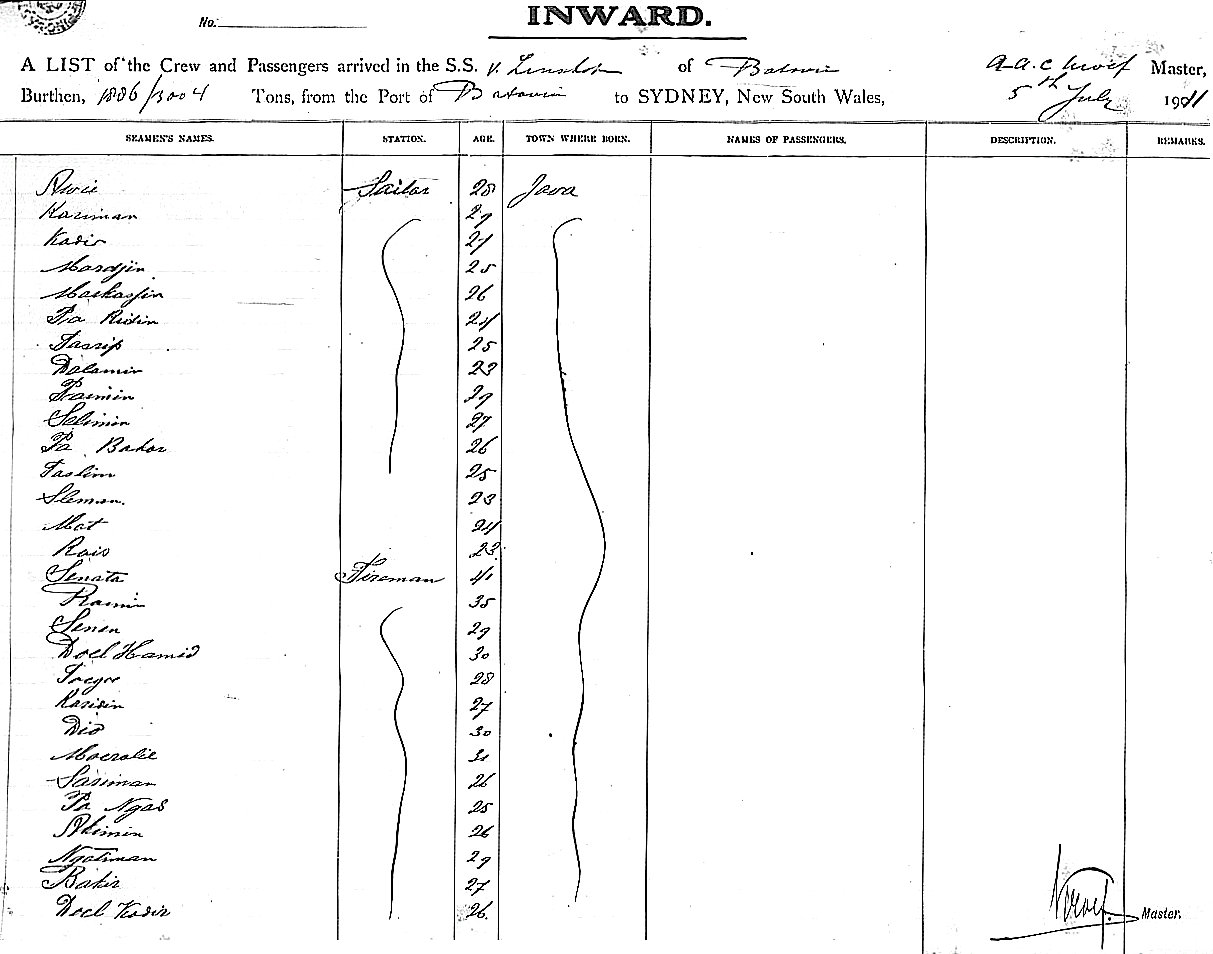 No.
INWARD.
A LIST of the Crew and Passengers arrived in the S.S. v. Linschoten of Batavia Master,
Burthen, 1886/3004 Tons, from the Port of Batavia to SYDNEY, New South Wales, 5th July 1911
SEAMEN'S NAMES. STATION. AGE. TOWN WHERE BORN. NAMES OF PASSENGERS. DESCRIPTION. REMARKS.
Sailor 28 Java
Kariman 29
Kadir 24
Mardjin 25
26
Pa Ridin 24
Tassrip 25
Dalamin 23
29
Selimin 27
Pa Bakar 26
Taslim 25
Sleman. 23
Mat 24
Rais 23
Senata Fireman 41
Ramin 35
Senen 29
Doel Hamid 30
28
Karidin 27
30
Moeralie
Sariman 26
Pa Ngas 25
26
Ngatiman 29
Bakir 27
Doel Kadir 26.
Master.